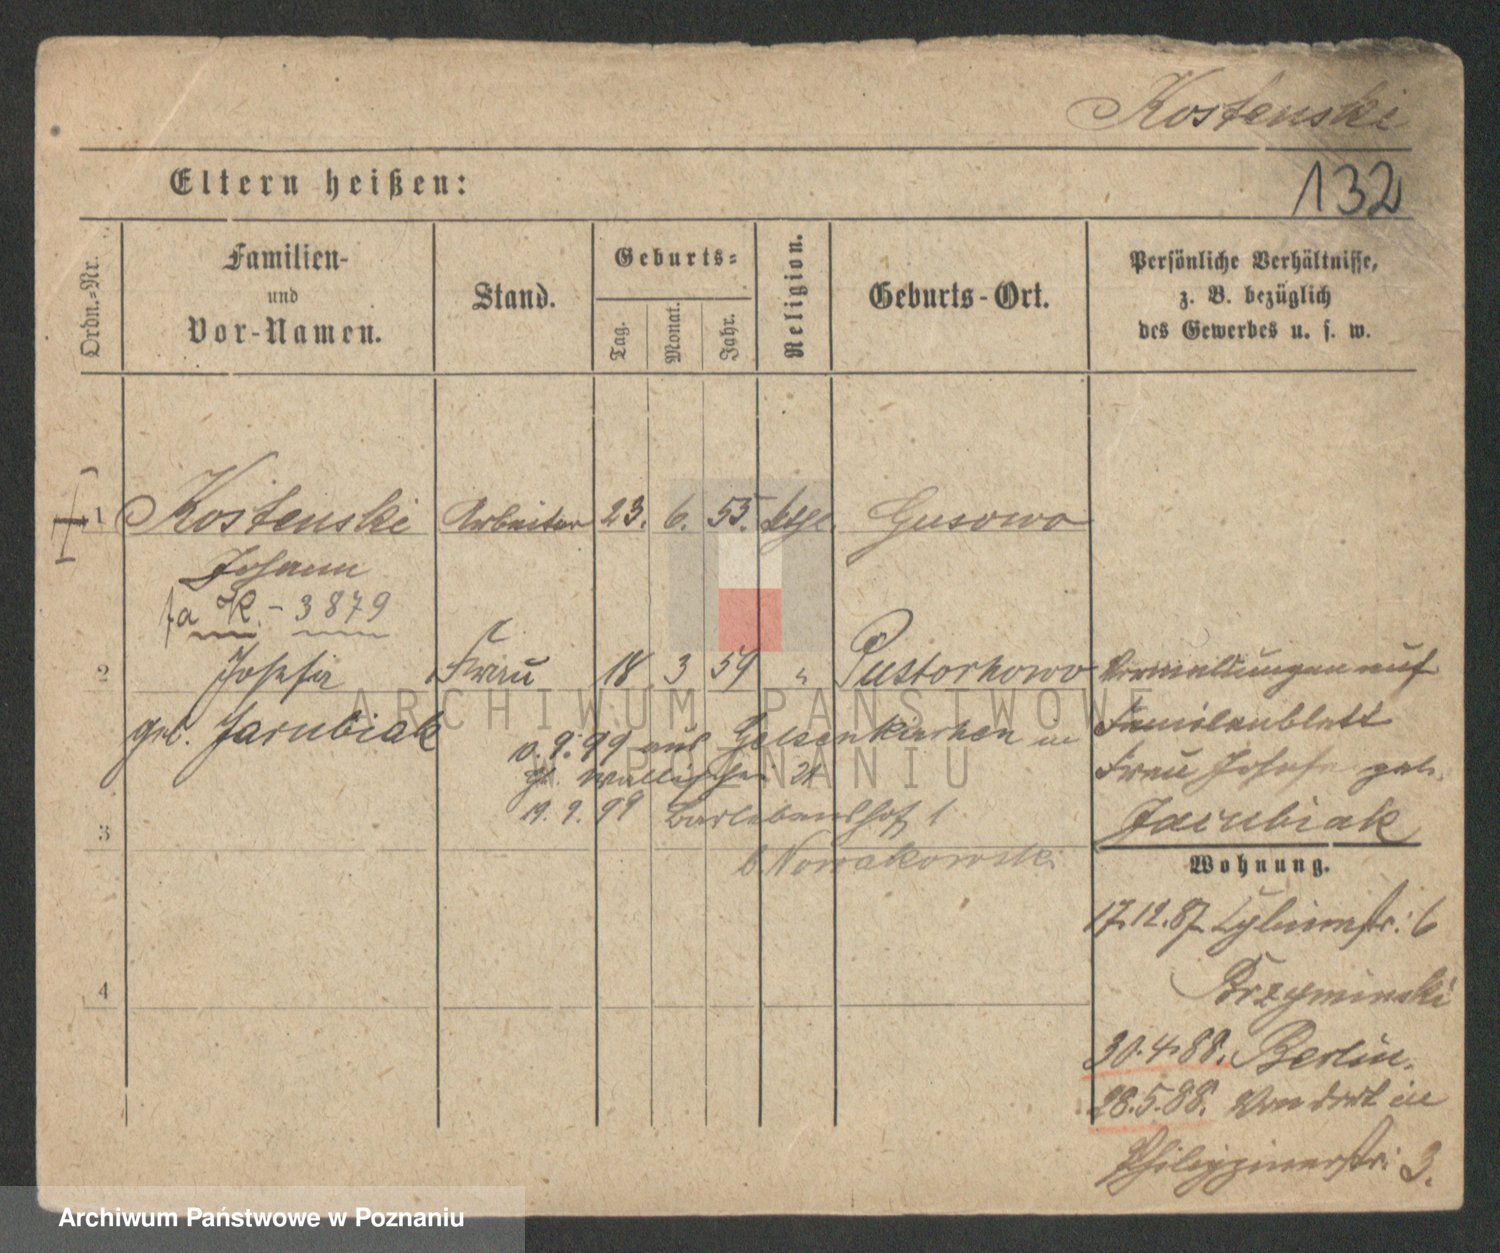 Kostenski
132
Eltern heißen:
Ordn.-Nr.
Familien-
und
Vor-Namen.
Stand.
Geburts-
Tag.
Monat.
Jahr.
Religion.
Geburts-Ort.
Persönliche Verhältnisse,
z. B. bezüglich
des Gewerbes u. s. w.
1 Kostenski Arbeiter 23. 6. 55. ktl. Gusowo
Johann
fa K. - 3879
2 Josefa Frau 18 3 59 " Pustorhowo
geb. Jarubiak
10. 9. 99 aus Gelsenkirchen in
Wallischei 21
19. 9. 99 Barlebenshof 1
b. Nowakowski
3
4
Vermeldungen auf
Familenblatt
Frau Josefa geb.
Jarubiak
Wohnung.
17.12.87 Cybinastr: 6
Przyminski
30.4.88. Berlin.
28.5.88. Von dort in
Philippinerstr: 3.
ARCHIWUM PAŃSTWOWE
W POZNANIU
Archiwum Państwowe w Poznaniu